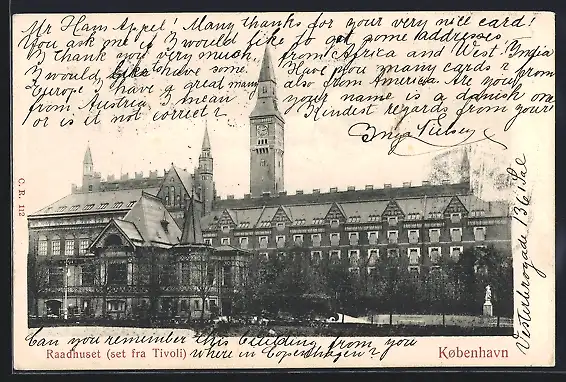 Mr Hans Appel! Many thanks for your very nice card!
You ask me if I would like to get some addresses
from Africa and West India
I thank you very much,
I would like have some. Have you many cards? from
Europe I have a great many also from America. Are you
from Austria? I mean your name is a danish one
or is it not correct? Kindest regards from your
Vesterbrogade 136
C. R. 112
Can you remember this building from you
Raadhuset (set fra Tivoli) where in Copenhagen?
København